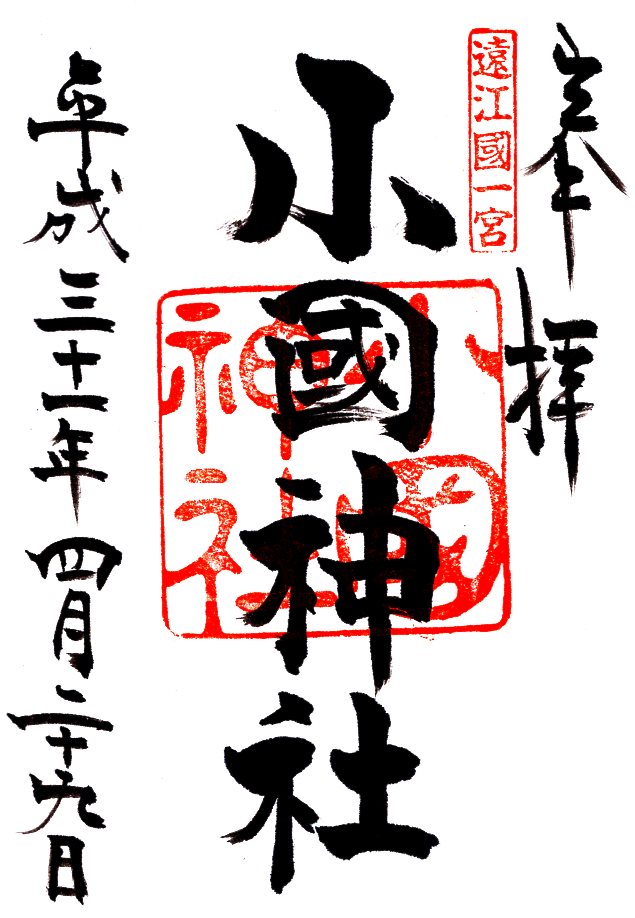 奉拝
遠江國一宮
小國神社
小國神社
平成三十一年四月二十九日